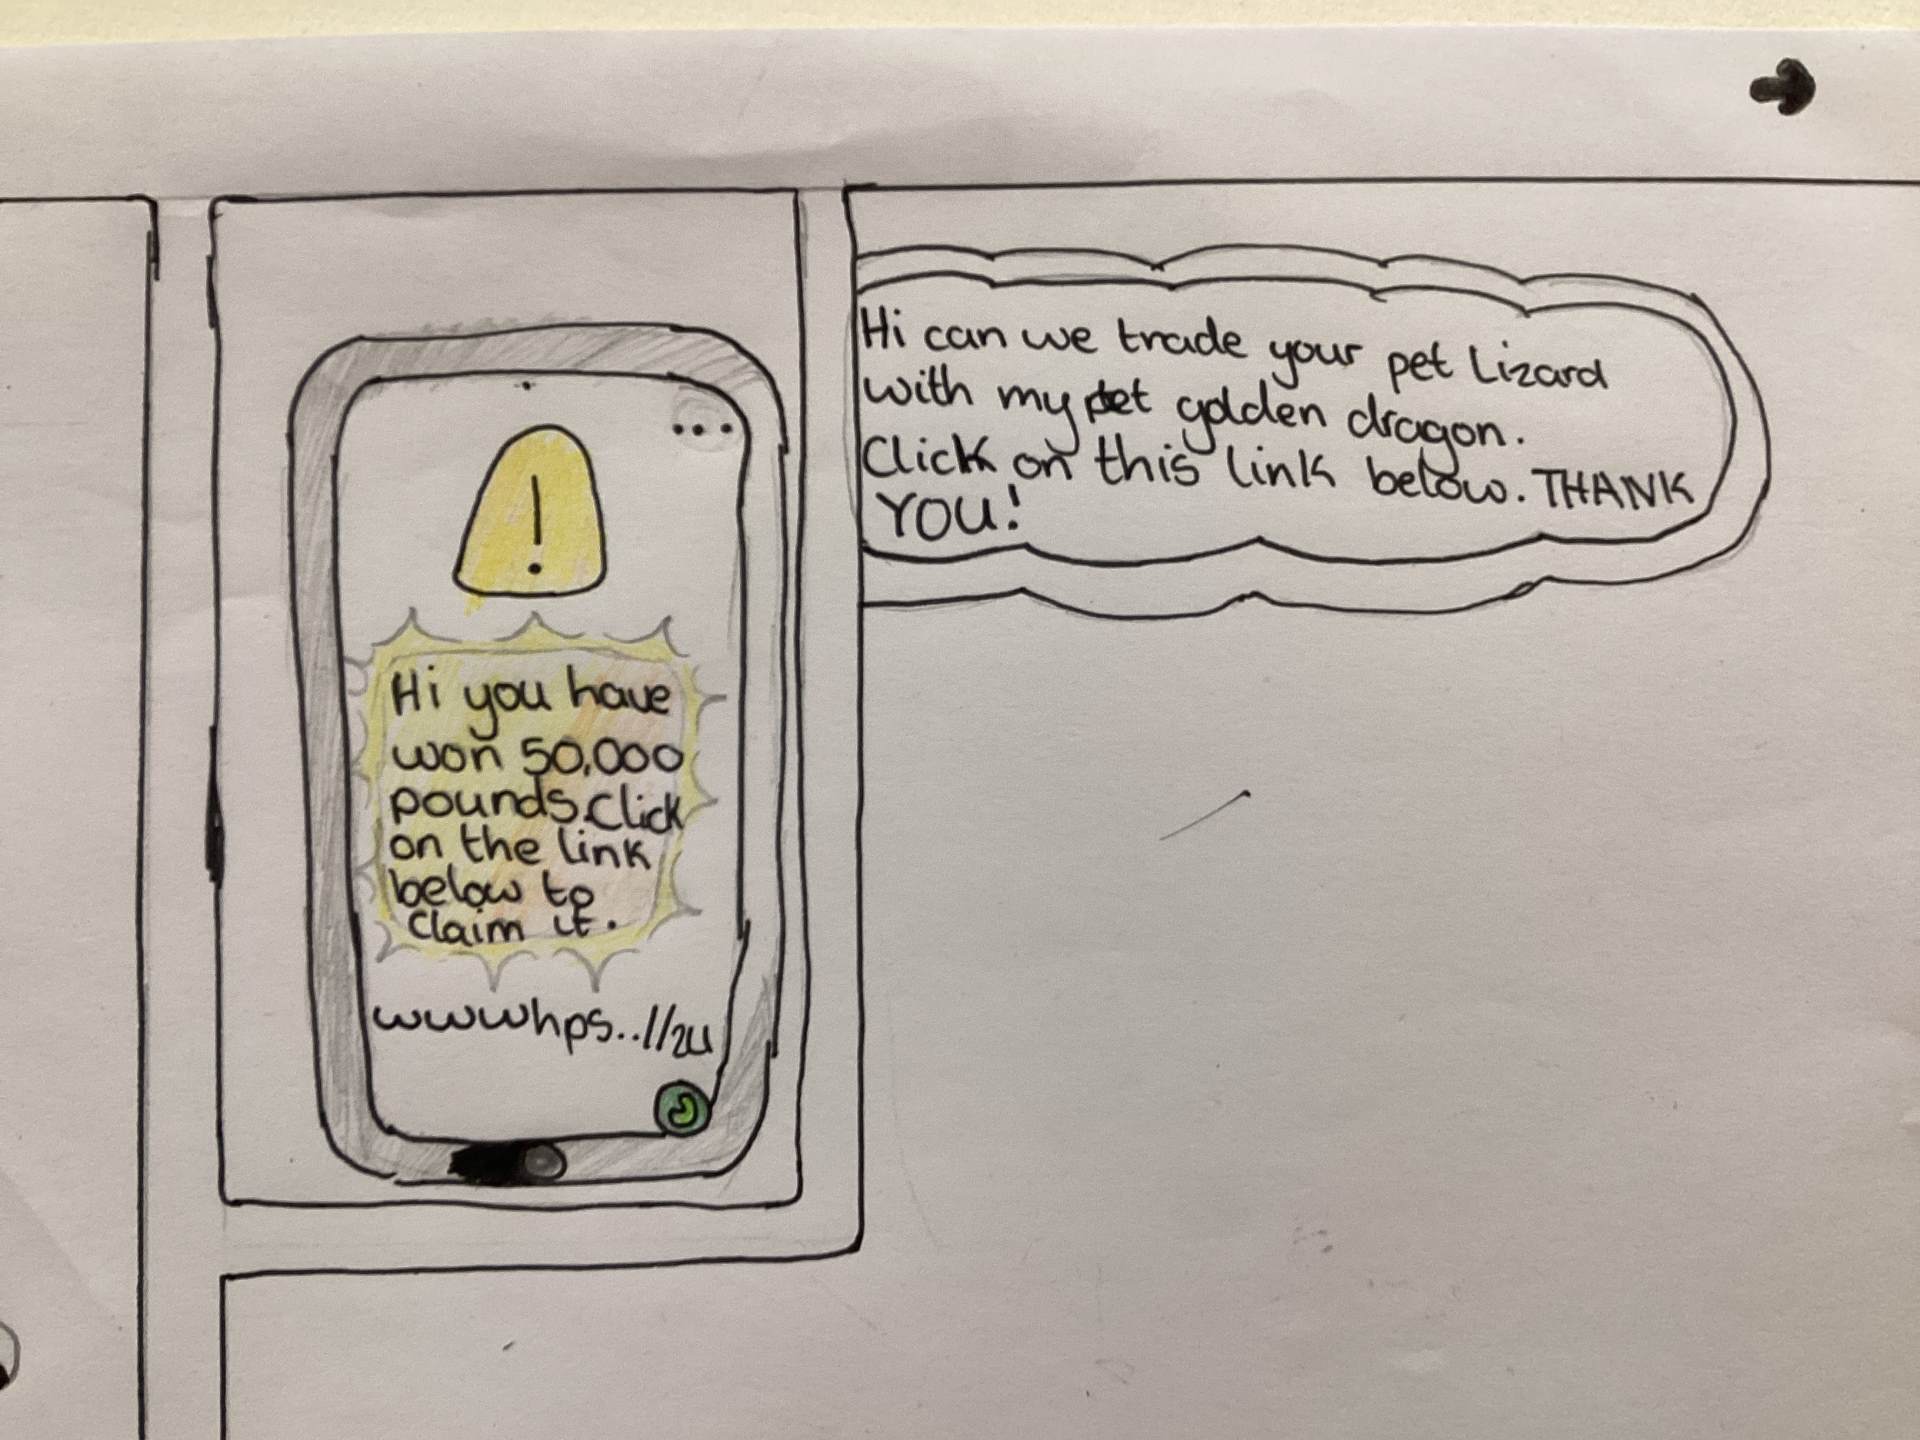 Hi you have
won 50,000
pounds. Click
on the link
below to
claim it.
wwwhps..//2u
Hi can we trade your pet Lizard
with my pet golden dragon.
Click on this link below. THANK
YOU!